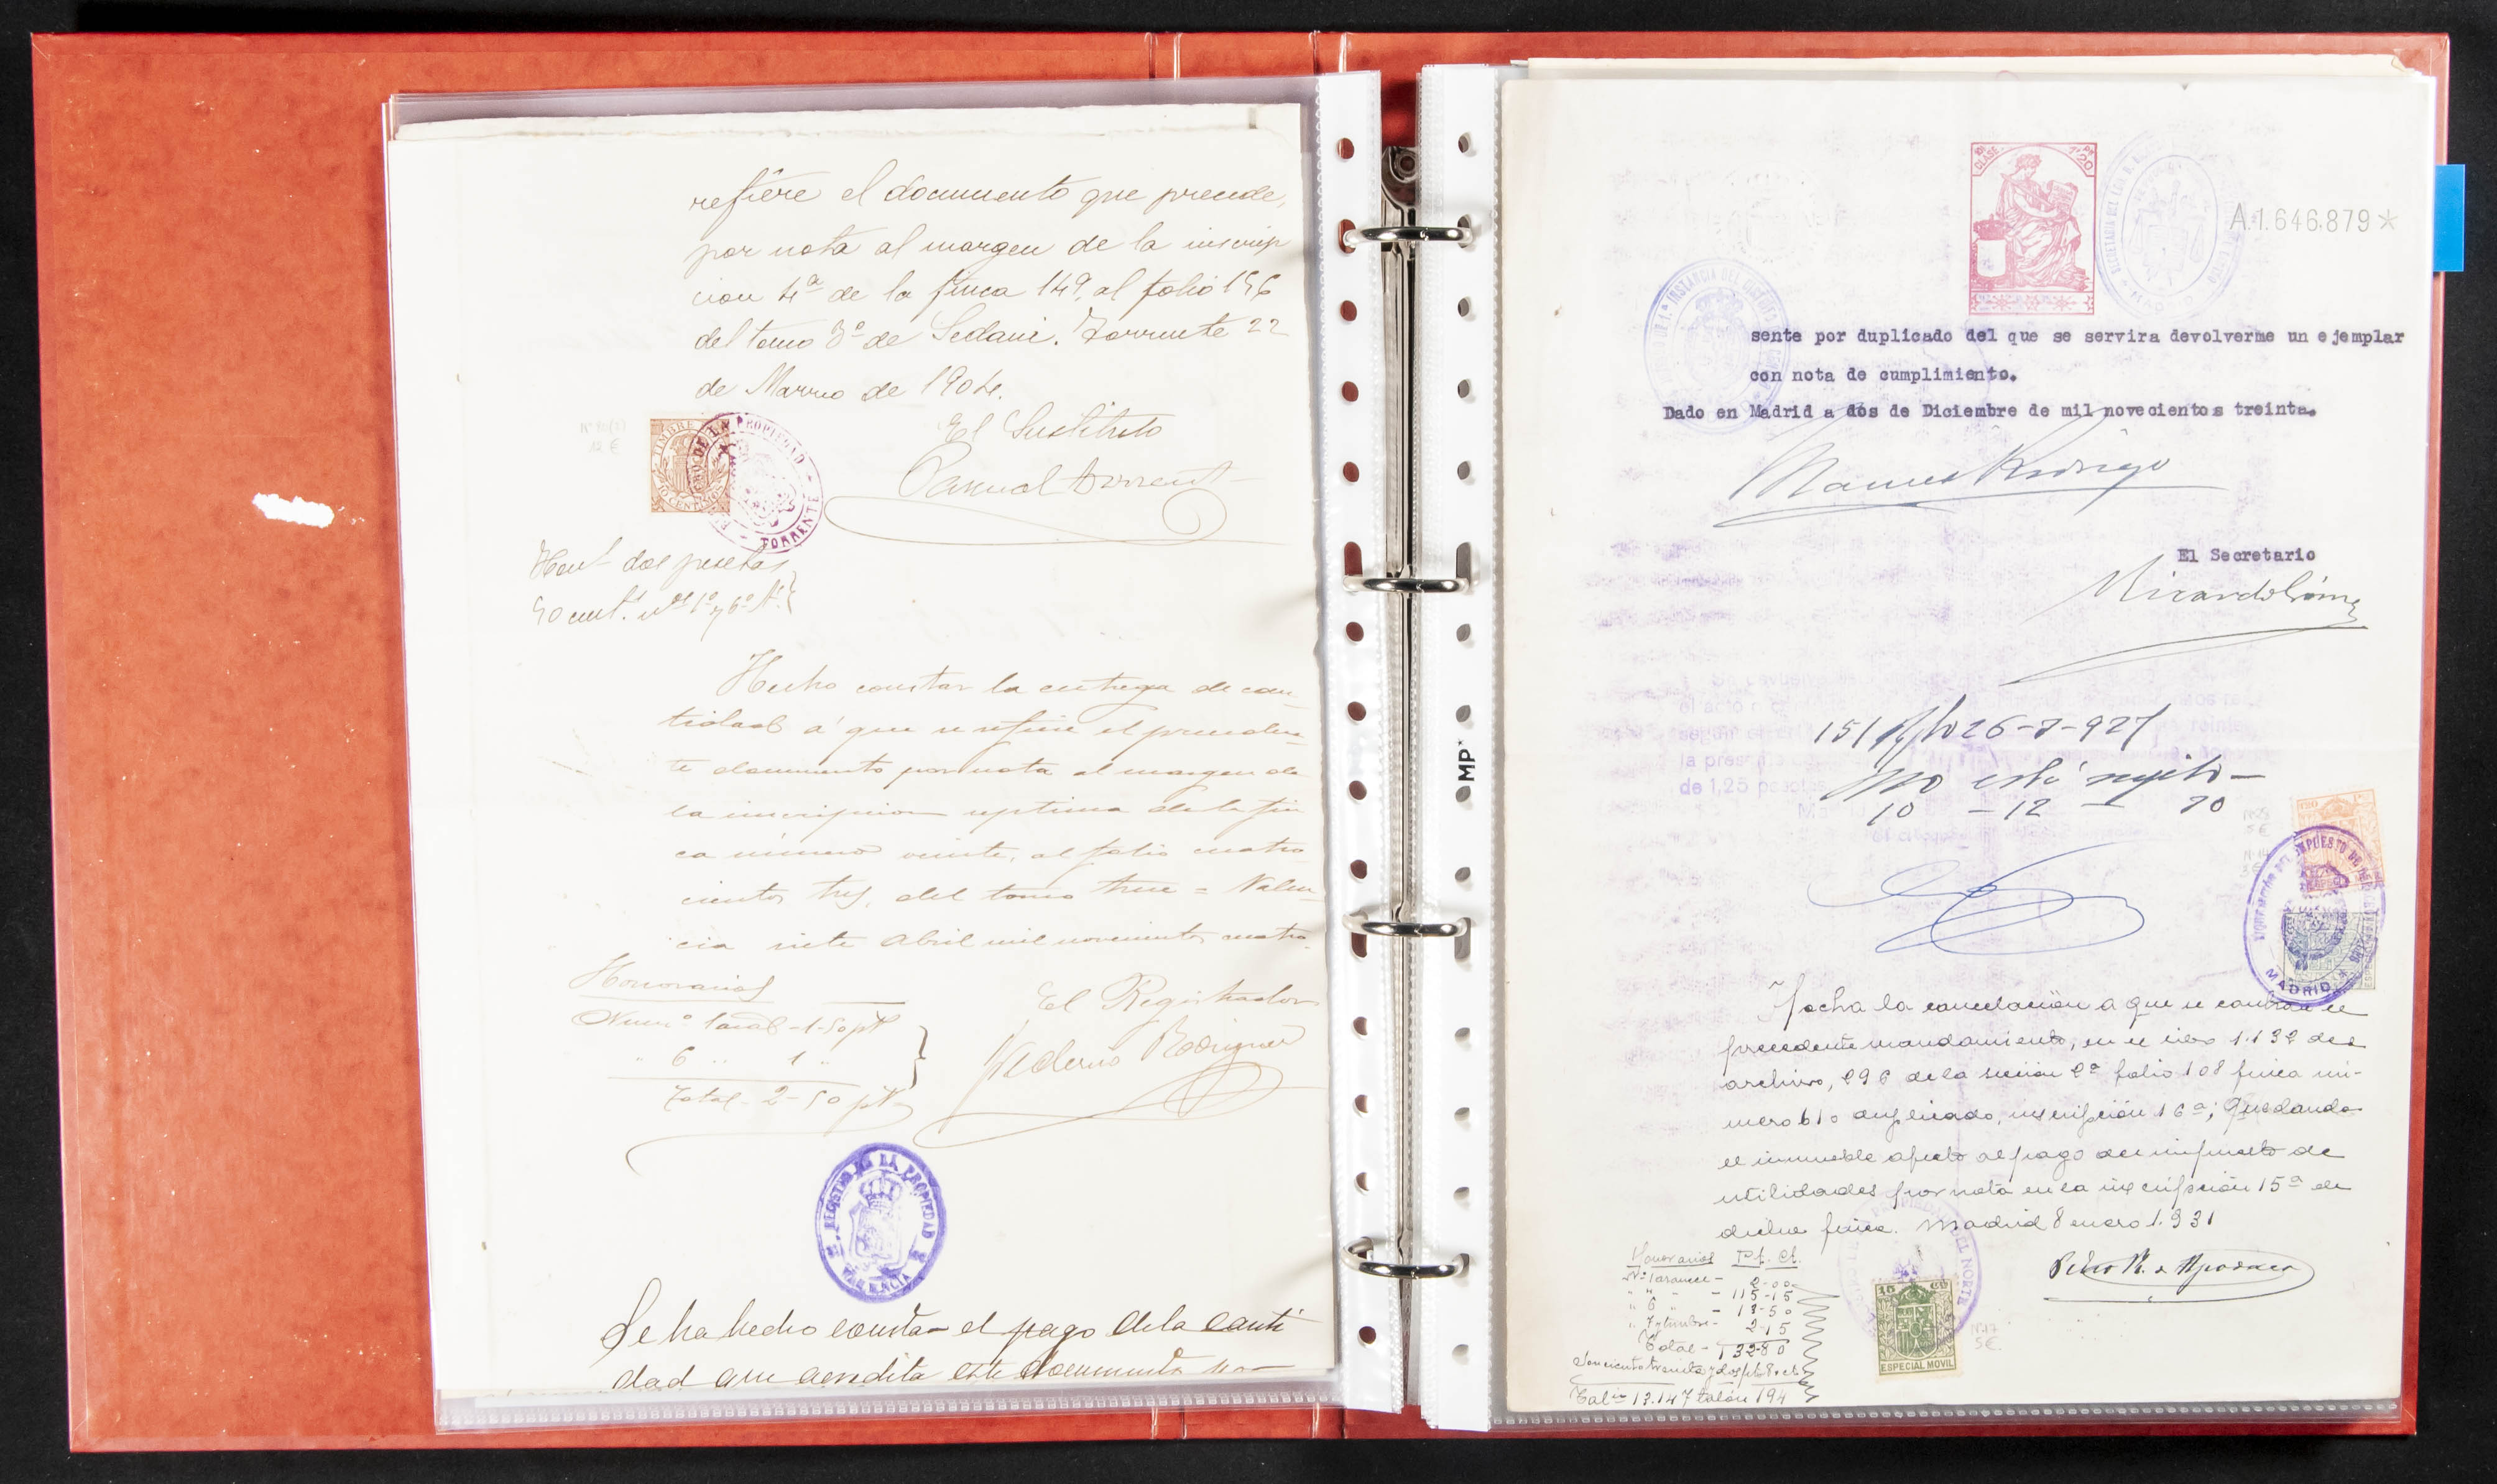 refiere el documento que precede,
por nota al margen de la inscrip
cion 4ª de la finca 149, al folio 156
del tomo 3º de Sedaví. Torrente 22
de Marzo de 1904.
El Sustituto
Pascual Torrent
TIMBRE
10 CENTIMOS
REGISTRO DE LA PROPIEDAD
TORRENTE
12 €
Hon.s dos pesetas
50 cent.s
Hecho constar la entrega de can-
tidad á que se refiere el preceden-
te documento por nota al margen de
la inscripcion septima de la fin
ca número veinte, al folio cuatro-
cientos tres, del tomo trece = Valen-
cia siete Abril mil novecientos cuatro.
Honorarios
Num.º 1-50 pt
" 6 " 1 "
Total - 2-50 pts
El Registrador
Rodriguez
REGISTRO DE LA PROPIEDAD
VALENCIA
Se ha hecho constar el pago de la canti
dad que acredita este documento
10ª CLASE
1'20
A.1.646.879*
Jº DE 1ª INSTANCIA DEL DISTRITO
MADRID
sente por duplicado del que se servira devolverme un ejemplar
con nota de cumplimiento.
Dado en Madrid a dos de Diciembre de mil novecientos treinta.
Manuel Rodrigo
El Secretario
Ricardo Gómez
la pres
de 1,25 pesetas
no está sujeto
10 - 12 - 30
5 €
IMPUESTO DE DERECHOS
MADRID
Hecha la cancelación a que se contrae el
precedente mandamiento, en el libro 1.132 del
archivo, 296 de la sección 2ª folio 108 finca nú-
mero 610 duplicado, inscripción 16ª; quedando
el inmueble afecto al pago del impuesto de
utilidades por nota en la inscripción 15ª de
dicha finca. Madrid 8 enero 1.931
Honorarios Pt. Ct.
Nº 1 arancel - 2-00
" " " - 115-15
" 6 " - 13-50
" 7 y timbre - 2-15
Total - 132-80
Son ciento treinta y dos pts 80 cts
Talº 13.147 talón 194
PROPIEDAD DEL NORTE
15 Cts
ESPECIAL MOVIL
Nº17
5€
MP